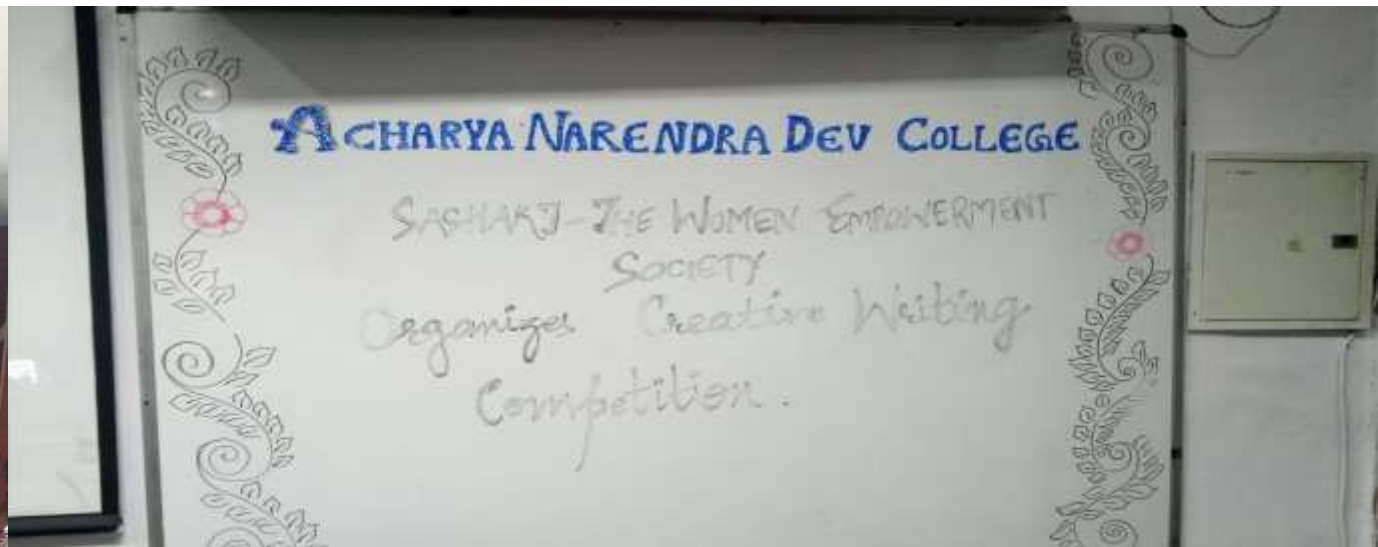 ACHARYA NARENDRA DEV COLLEGE
SASHAKT-THE WOMEN EMPOWERMENT
SOCIETY
Organizes Creative Writing
Competition.